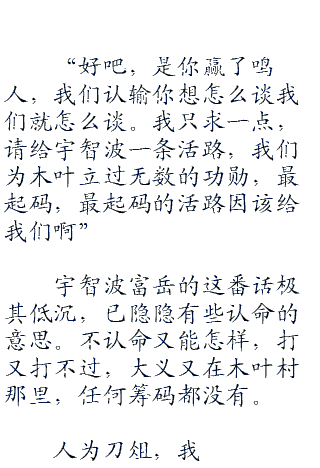 “好吧，是你赢了鸣
人，我们认输你想怎么谈我
们就怎么谈。我只求一点，
请给宇智波一条活路，我们
为木叶立过无数的功勋，最
起码，最起码的活路因该给
我们啊”
宇智波富岳的这番话极
其低沉，已隐隐有些认命的
意思。不认命又能怎样，打
又打不过，大义又在木叶村
那里，任何筹码都没有。
人为刀俎，我